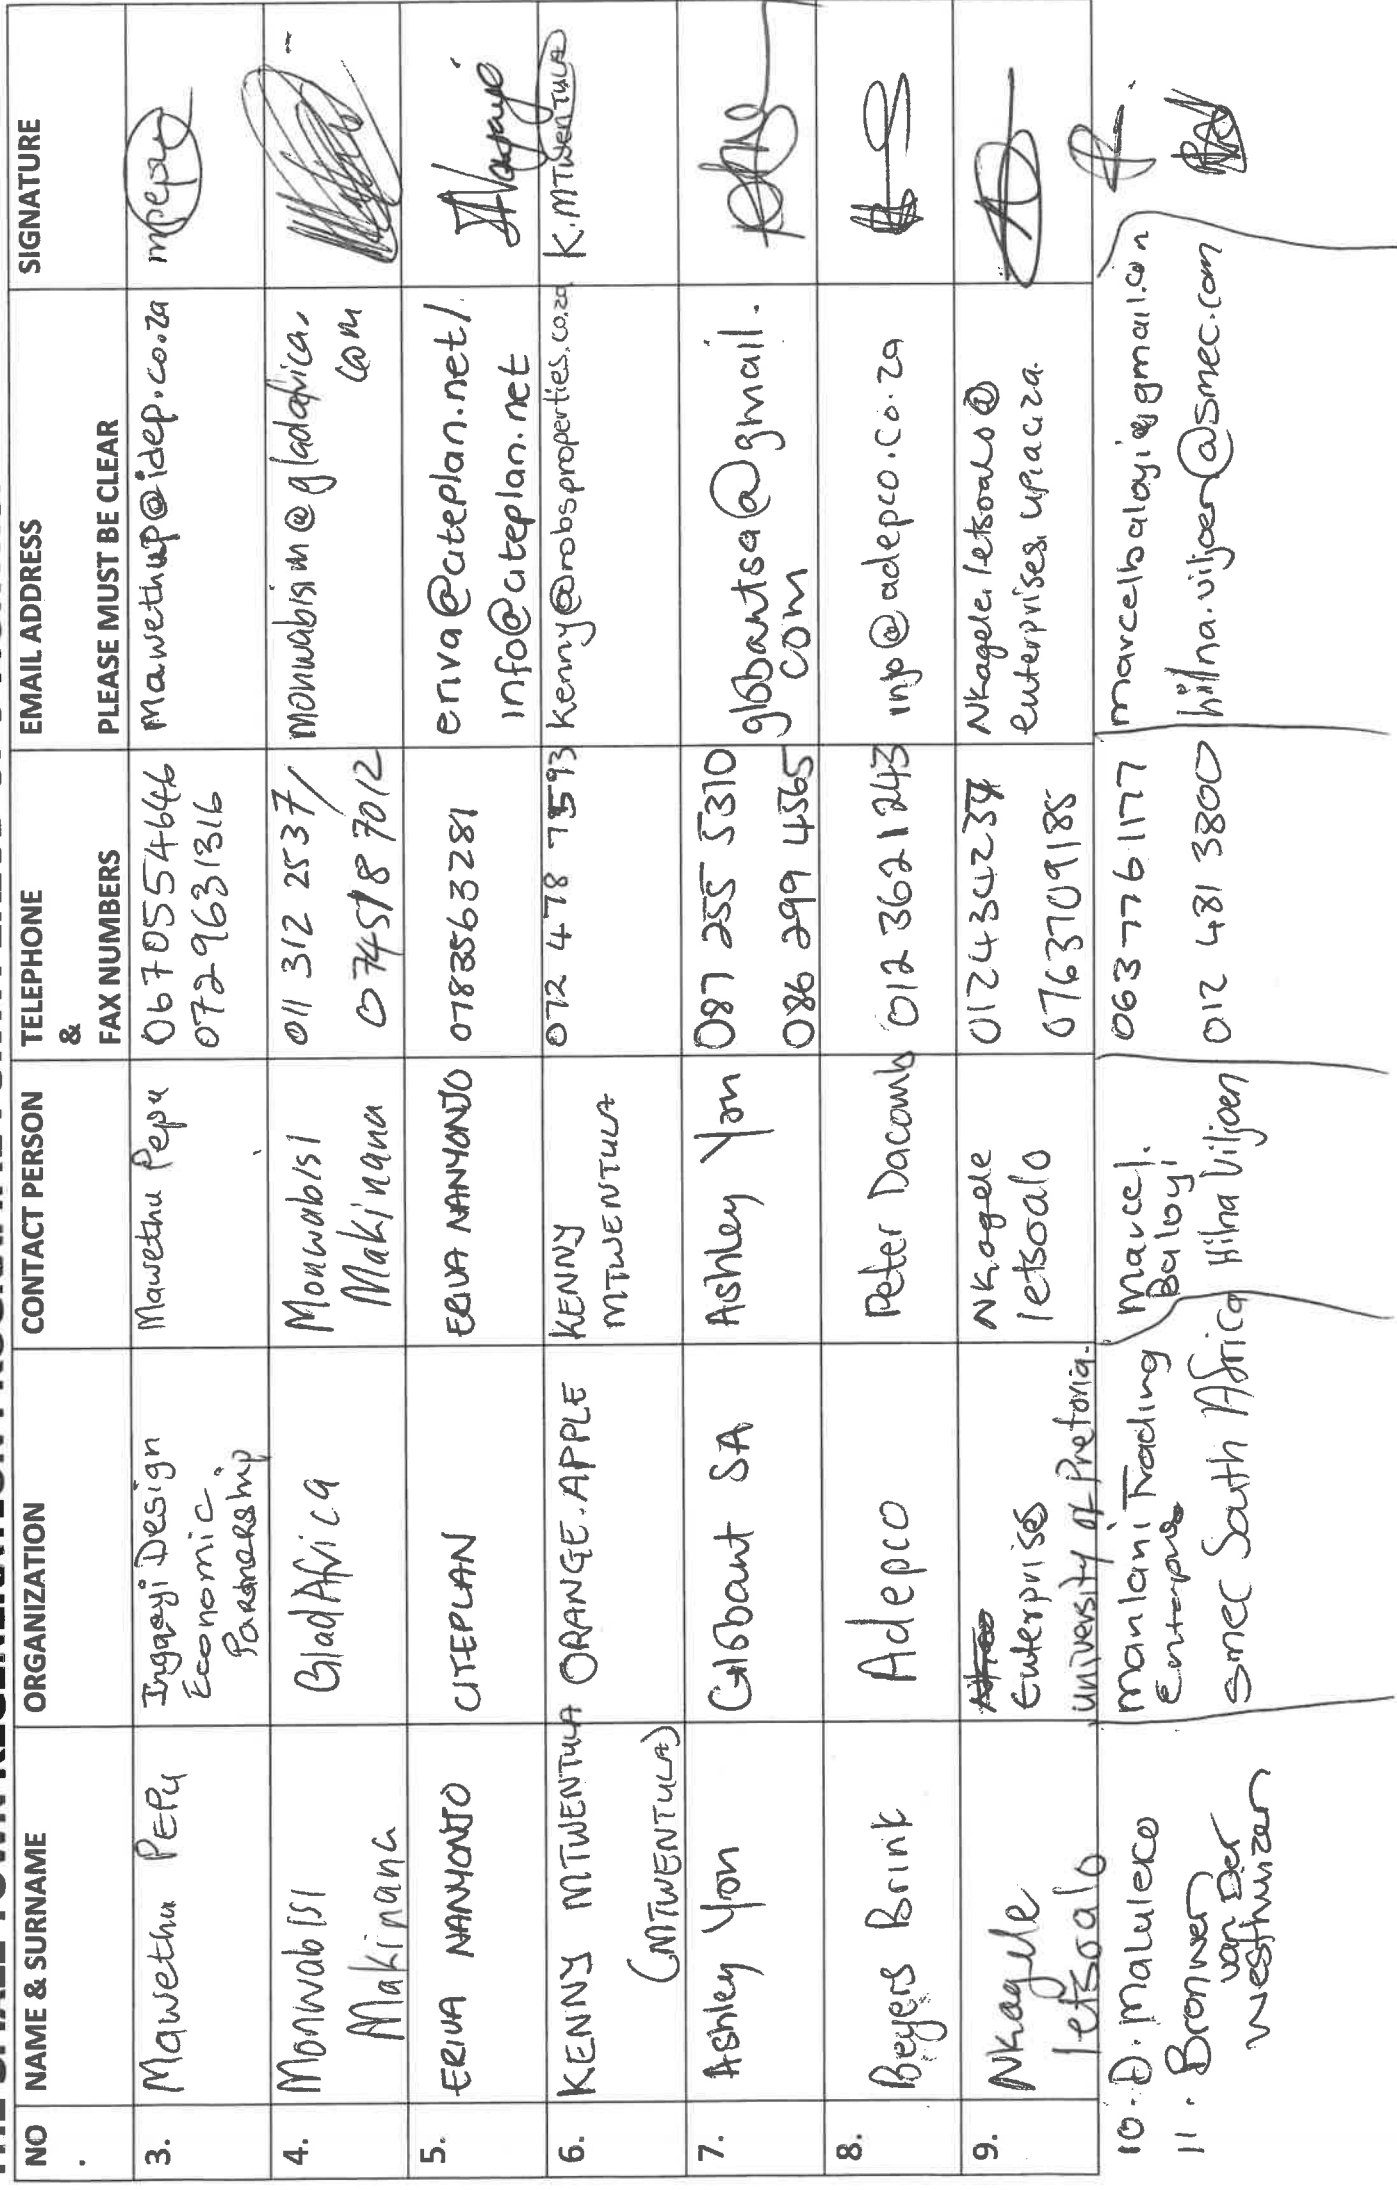 NO NAME & SURNAME ORGANIZATION CONTACT PERSON TELEPHONE & FAX NUMBERS EMAIL ADDRESS PLEASE MUST BE CLEAR SIGNATURE
3. Mawethu PEPU
Ingqayi Design
Economic
Partnership
Mawethu Pepu
0670554646
0729631316
mawethup@idep.co.za
mpepu
4. Monwabisi
Makinana
GladAfrica
Monwabisi
Makinana
011 312 2537/
0745187012
monwabisim@gladafrica.
com
5. ERIVA NANYONJO
CITEPLAN
ERIVA NANYONJO
0783563281
eriva@citeplan.net/
info@citeplan.net
6. KENNY MTWENTULA
(MTWENTULA)
ORANGE.APPLE
KENNY
MTWENTULA
072 478 7593
Kenny@robsproperties.co.za
K.MTWENTULA
7. Ashley Yon
Globant SA
Ashley Yon
087 255 5310
086 299 4565
globantsa@gmail.
com
8. Beyers Brink
Adepco
Peter Dacomb
012 3621243
info@adepco.co.za
9. Nkagele
letsoalo
Enterprises
University of Pretoria.
Nkagele
letsoalo
0763709185
Nkagele.letsoalo@
enterprises.up.ac.za
10. D. Maluleke
manlani Trading
Enterprise
Marcel.
Baloyi
0637761177
marcelbaloyi@gmail.com
11. Bronwen
van Der
Westhuizen
smec South Africa
Hilna Viljoen
012 481 3800
hilna.viljoen@smec.com